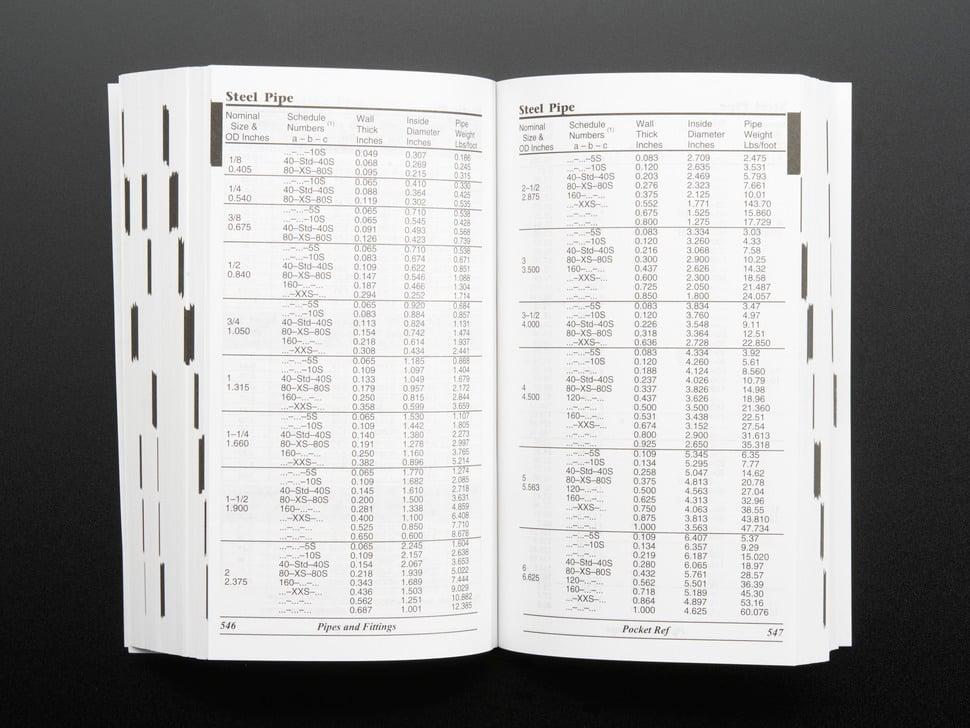 Steel Pipe
Nominal Size & OD Inches Schedule Numbers (1) a – b – c Wall Thick Inches Inside Diameter Inches Pipe Weight Lbs/foot
1/8 0.405
...–...–10S 0.049 0.307 0.186
40–Std–40S 0.068 0.269 0.245
80–XS–80S 0.095 0.215 0.315
1/4 0.540
...–...–10S 0.065 0.410 0.330
40–Std–40S 0.088 0.364 0.425
80–XS–80S 0.119 0.302 0.535
3/8 0.675
...–...–5S 0.065 0.710 0.538
...–...–10S 0.065 0.545 0.428
40–Std–40S 0.091 0.493 0.568
80–XS–80S 0.126 0.423 0.739
1/2 0.840
...–...–5S 0.065 0.710 0.538
...–...–10S 0.083 0.674 0.671
40–Std–40S 0.109 0.622 0.851
80–XS–80S 0.147 0.546 1.088
160–...–... 0.187 0.466 1.304
...–XXS–... 0.294 0.252 1.714
3/4 1.050
...–...–5S 0.065 0.920 0.684
...–...–10S 0.083 0.884 0.857
40–Std–40S 0.113 0.824 1.131
80–XS–80S 0.154 0.742 1.474
160–...–... 0.218 0.614 1.937
...–XXS–... 0.308 0.434 2.441
1 1.315
...–...–5S 0.065 1.185 0.868
...–...–10S 0.109 1.097 1.404
40–Std–40S 0.133 1.049 1.679
80–XS–80S 0.179 0.957 2.172
160–...–... 0.250 0.815 2.844
...–XXS–... 0.358 0.599 3.659
1–1/4 1.660
...–...–5S 0.065 1.530 1.107
...–...–10S 0.109 1.442 1.805
40–Std–40S 0.140 1.380 2.273
80–XS–80S 0.191 1.278 2.997
160–...–... 0.250 1.160 3.765
...–XXS–... 0.382 0.896 5.214
1–1/2 1.900
...–...–5S 0.065 1.770 1.274
...–...–10S 0.109 1.682 2.085
40–Std–40S 0.145 1.610 2.718
80–XS–80S 0.200 1.500 3.631
160–...–... 0.281 1.338 4.859
...–XXS–... 0.400 1.100 6.408
...–...–... 0.525 0.850 7.710
...–...–... 0.650 0.600 8.678
2 2.375
...–...–5S 0.065 2.245 1.604
...–...–10S 0.109 2.157 2.638
40–Std–40S 0.154 2.067 3.653
80–XS–80S 0.218 1.939 5.022
160–...–... 0.343 1.689 7.444
...–XXS–... 0.436 1.503 9.029
...–...–... 0.562 1.251 10.882
...–...–... 0.687 1.001 12.385
546 Pipes and Fittings
Steel Pipe
Nominal Size & OD Inches Schedule Numbers (1) a – b – c Wall Thick Inches Inside Diameter Inches Pipe Weight Lbs/foot
2–1/2 2.875
...–...–5S 0.083 2.709 2.475
...–...–10S 0.120 2.635 3.531
40–Std–40S 0.203 2.469 5.793
80–XS–80S 0.276 2.323 7.661
160–...–... 0.375 2.125 10.01
...–XXS–... 0.552 1.771 143.70
...–...–... 0.675 1.525 15.860
...–...–... 0.800 1.275 17.729
3 3.500
...–...–5S 0.083 3.334 3.03
...–...–10S 0.120 3.260 4.33
40–Std–40S 0.216 3.068 7.58
80–XS–80S 0.300 2.900 10.25
160–...–... 0.437 2.626 14.32
...–XXS–... 0.600 2.300 18.58
...–...–... 0.725 2.050 21.487
...–...–... 0.850 1.800 24.057
3–1/2 4.000
...–...–5S 0.083 3.834 3.47
...–...–10S 0.120 3.760 4.97
40–Std–40S 0.226 3.548 9.11
80–XS–80S 0.318 3.364 12.51
...–XXS–... 0.636 2.728 22.850
4 4.500
...–...–5S 0.083 4.334 3.92
...–...–10S 0.120 4.260 5.61
...–...–... 0.188 4.124 8.560
40–Std–40S 0.237 4.026 10.79
80–XS–80S 0.337 3.826 14.98
120–...–... 0.437 3.626 18.96
...–...–... 0.500 3.500 21.360
160–...–... 0.531 3.438 22.51
...–XXS–... 0.674 3.152 27.54
...–...–... 0.800 2.900 31.613
...–...–... 0.925 2.650 35.318
5 5.563
...–...–5S 0.109 5.345 6.35
...–...–10S 0.134 5.295 7.77
40–Std–40S 0.258 5.047 14.62
80–XS–80S 0.375 4.813 20.78
120–...–... 0.500 4.563 27.04
160–...–... 0.625 4.313 32.96
...–XXS–... 0.750 4.063 38.55
...–...–... 0.875 3.813 43.810
...–...–... 1.000 3.563 47.734
6 6.625
...–...–5S 0.109 6.407 5.37
...–...–10S 0.134 6.357 9.29
...–...–... 0.219 6.187 15.020
40–Std–40S 0.280 6.065 18.97
80–XS–80S 0.432 5.761 28.57
120–...–... 0.562 5.501 36.39
160–...–... 0.718 5.189 45.30
...–XXS–... 0.864 4.897 53.16
...–...–... 1.000 4.625 60.076
Pocket Ref 547